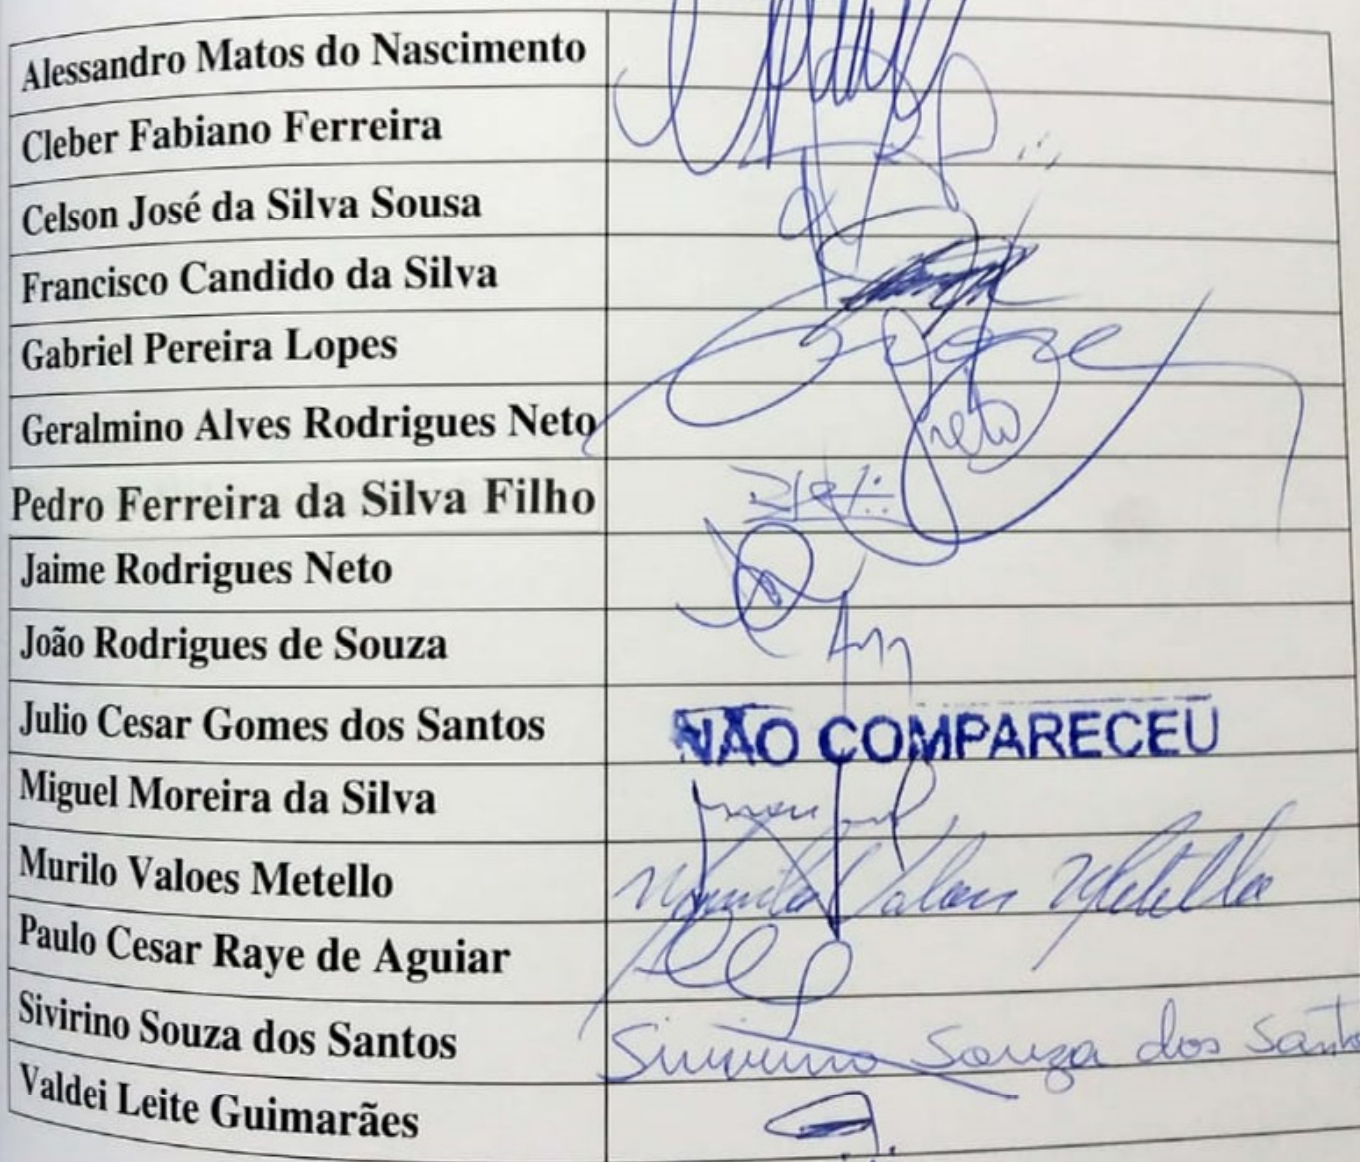 Alessandro Matos do Nascimento
Cleber Fabiano Ferreira
Celson José da Silva Sousa
Francisco Candido da Silva
Gabriel Pereira Lopes
Geralmino Alves Rodrigues Neto
neto
Pedro Ferreira da Silva Filho
Jaime Rodrigues Neto
João Rodrigues de Souza
Julio Cesar Gomes dos Santos NÃO COMPARECEU
Miguel Moreira da Silva
Murilo Valoes Metello Murilo Valoes Metello
Paulo Cesar Raye de Aguiar
Sivirino Souza dos Santos Sivirino Souza dos Santo
Valdei Leite Guimarães